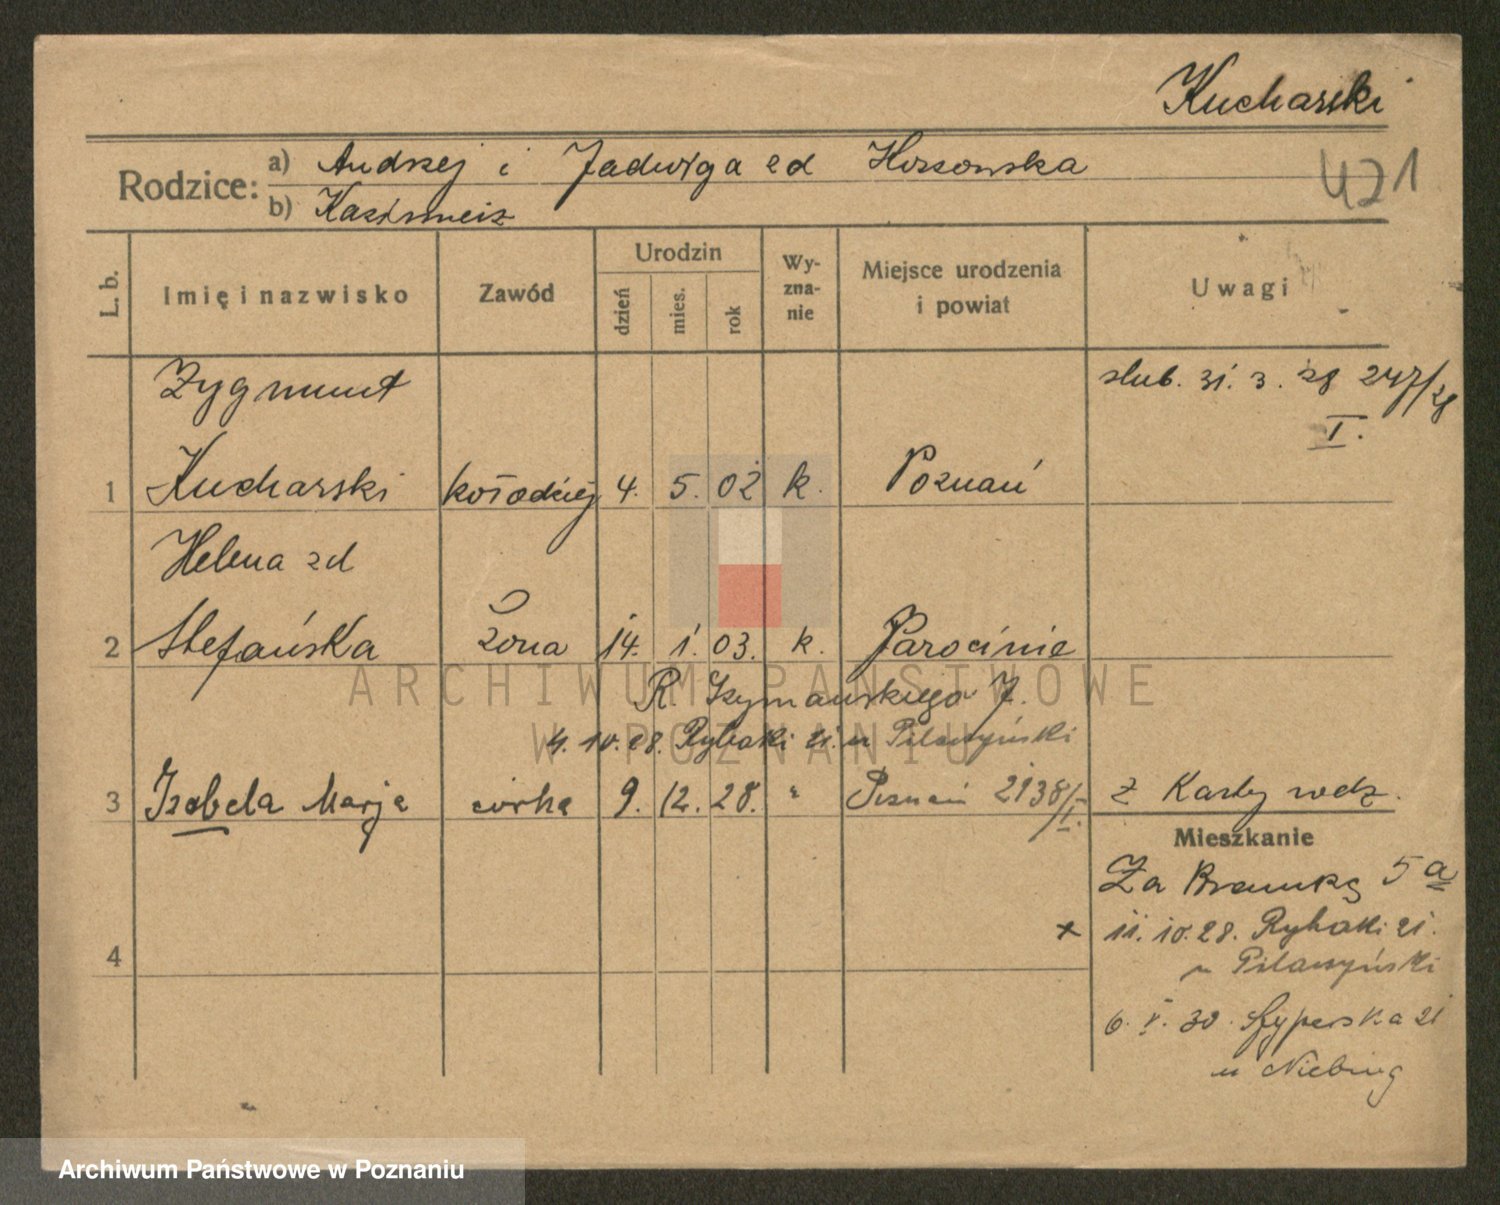 Kucharski
Rodzice: a) Andrzej i Jadwiga zd
471
b) Kazimierz
L. b.
Imię i nazwisko
Zawód
Urodzin
dzień
mies.
rok
Wy-
zna-
nie
Miejsce urodzenia
i powiat
Uwagi
Zygmunt
ślub. 31. 3. 28 247/28
I.
1 Kucharski kołodziej 4. 5. 02 k. Poznań
Helena zd
2 Stefańska żona 14. 1. 03. k. Jarocinie
R. Szymańskiego J.
4. 10. 28. Rybaki 21. u Pilaszyński
3 Izabela Marja córka 9. 12. 28. " Poznań 2138/I. z Karty rodz.
Mieszkanie
Za Bramką 5a
+ 11. 10. 28. Rybaki 21.
u Pilaszyński
4
6. V. 30. Szyperska 21
u Niebing
ARCHIWUM PAŃSTWOWE
W POZNANIU
Archiwum Państwowe w Poznaniu